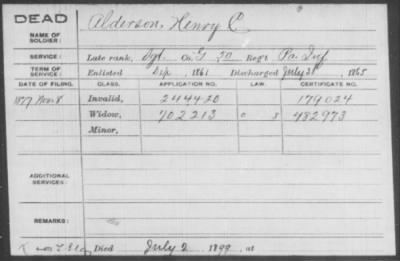 DEAD
NAME OF SOLDIER: Alderson, Henry C
SERVICE: Late rank, Sgt. Co. G 50 Reg't Pa. Inf
TERM OF SERVICE: Enlisted Sep. 1861 Discharged July 1865
DATE OF FILING. CLASS. APPLICATION NO. LAW. CERTIFICATE NO.
1877 Nov. 8 Invalid, 244420 179024
Widow, 702213 482973
Minor,
ADDITIONAL SERVICES:
REMARKS:
Died July 2 1899, at